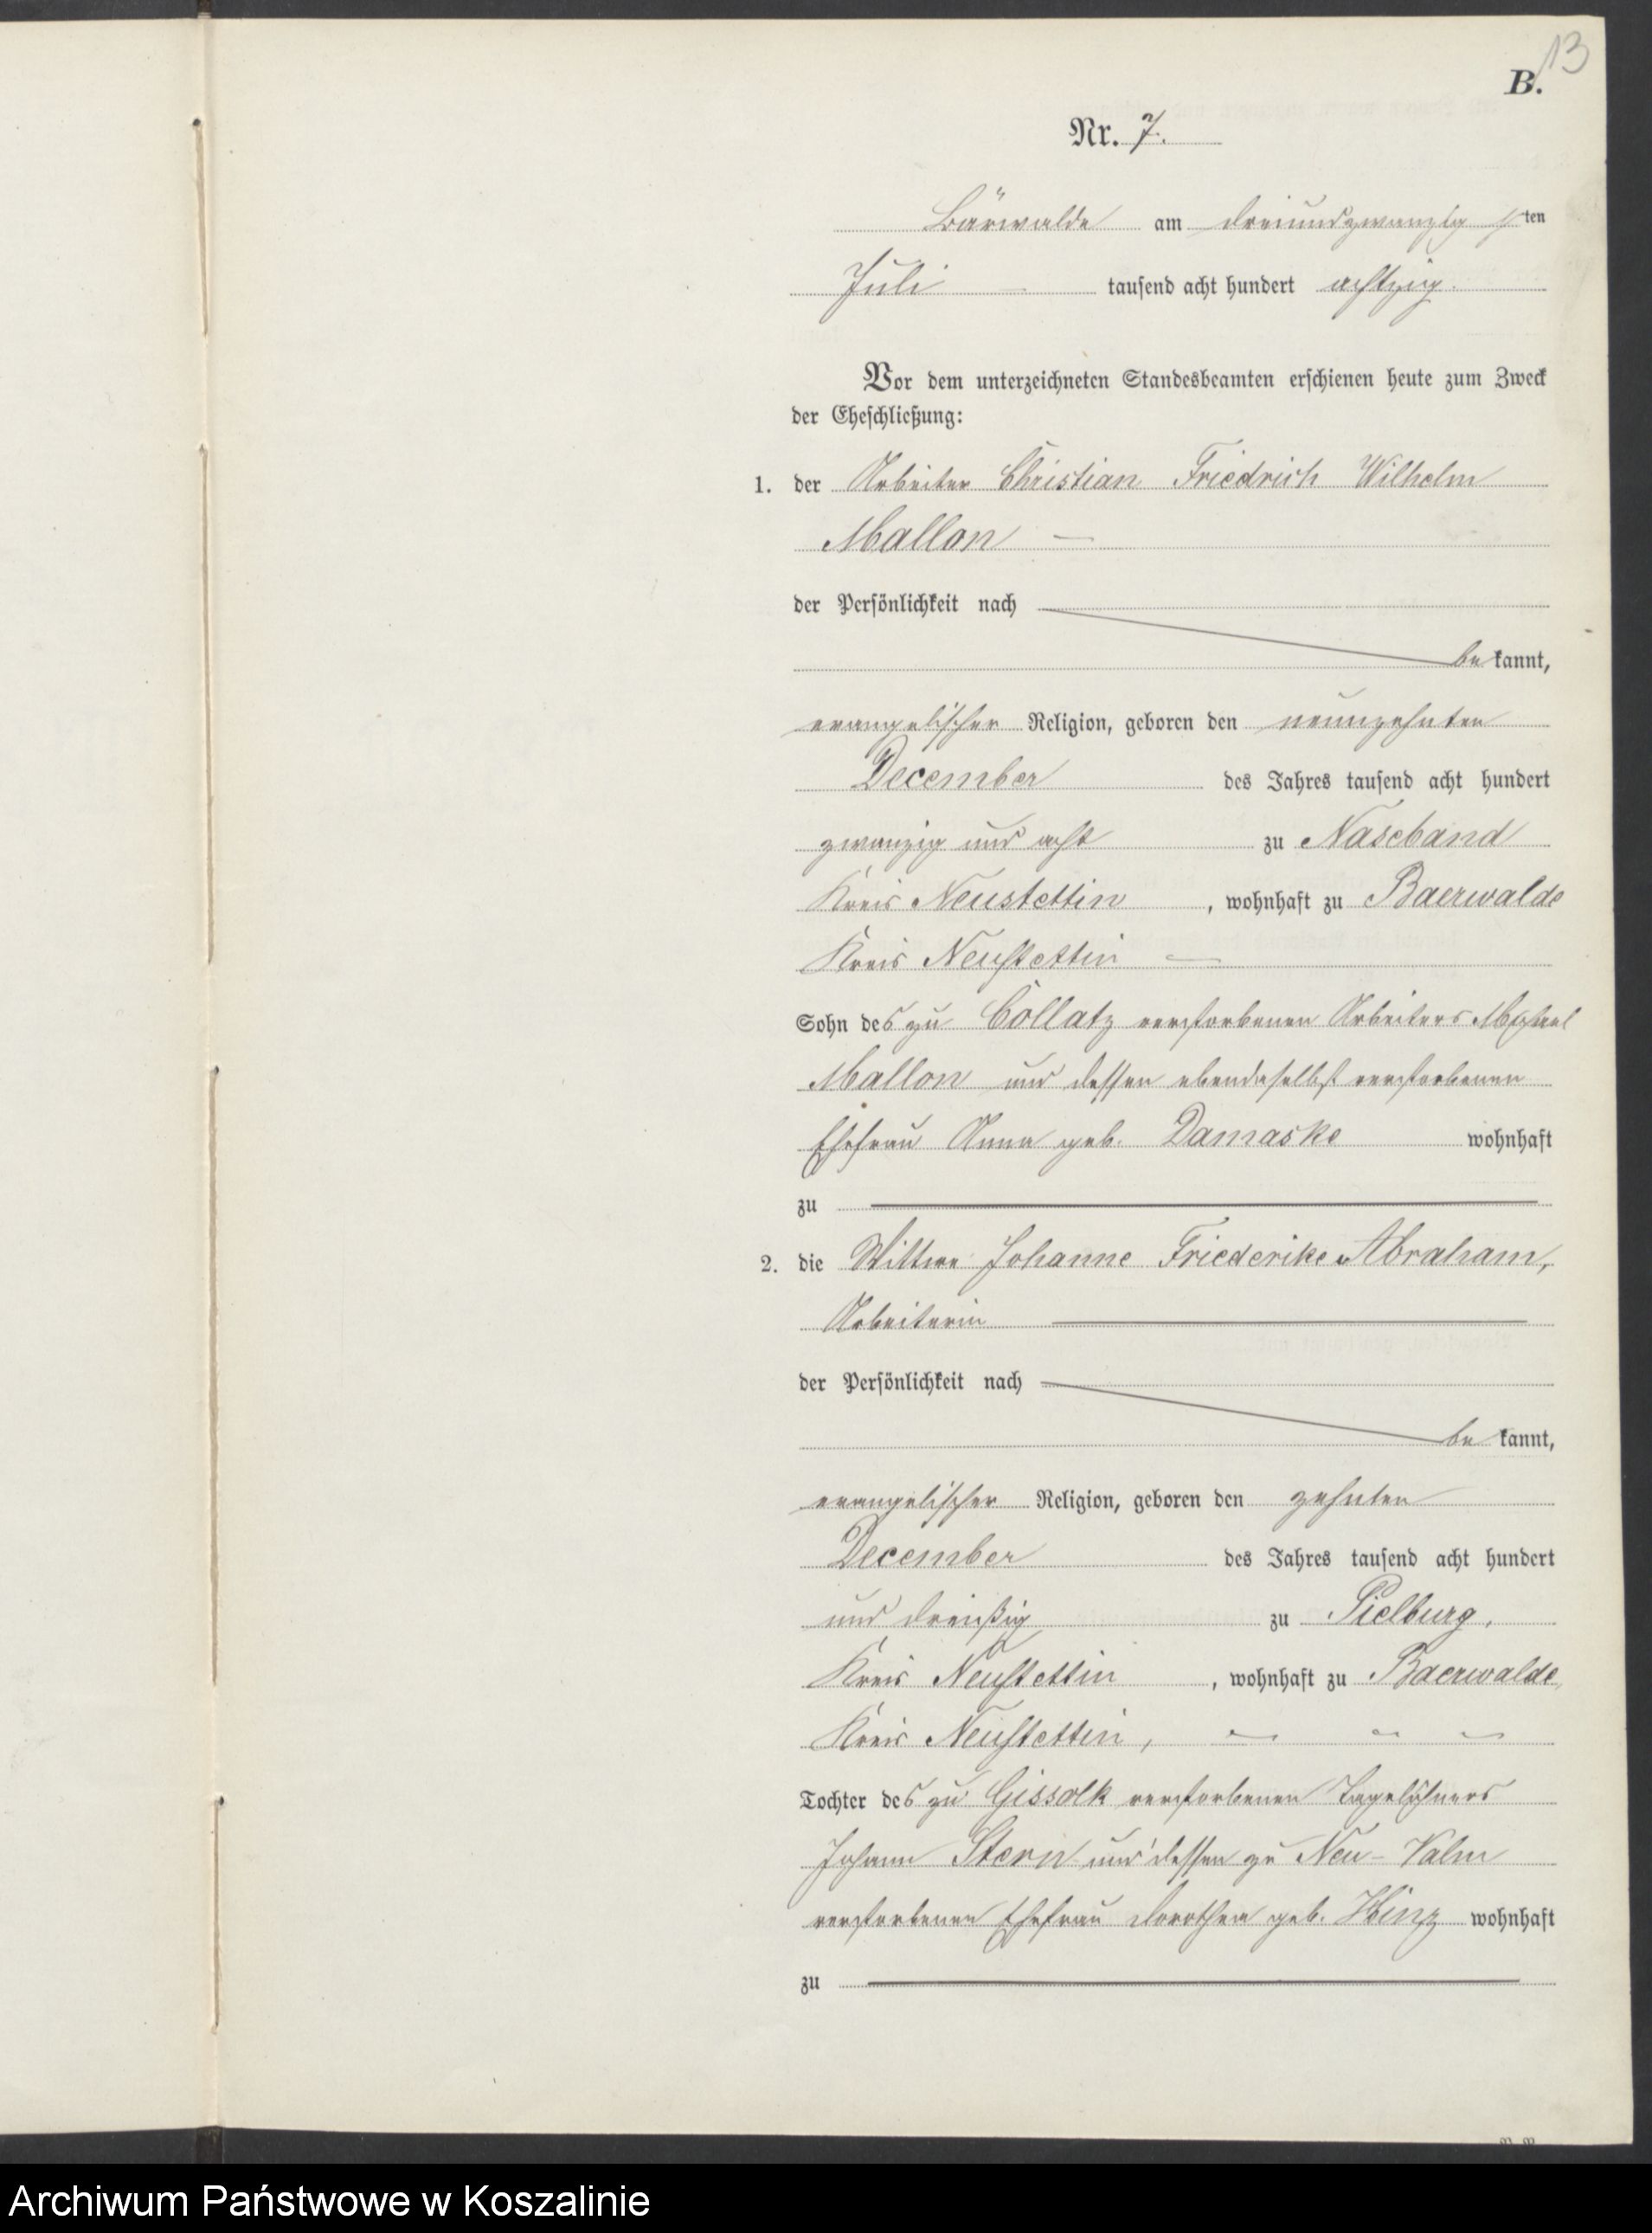 13
B.
Nr. 7.
Bärwalde am dreiundzwanzigsten
Juli tausend acht hundert achtzig.
Vor dem unterzeichneten Standesbeamten erschienen heute zum Zweck
der Eheschließung:
1. der Arbeiter Christian Friedrich Wilhelm
Mallon —
der Persönlichkeit nach
bekannt,
evangelischer Religion, geboren den neunzehnten
December des Jahres tausend acht hundert
zwanzig und acht zu Naseband
Kreis Neustettin, wohnhaft zu Baerwalde
Kreis Neustettin —
Sohn des zu Collatz verstorbenen Arbeiters
Mallon und dessen ebendaselbst verstorbenen
Ehefrau Anna geb. Damaske wohnhaft
zu
2. die Wittwe Johanne Friederike Abraham,
Arbeiterin
der Persönlichkeit nach
bekannt,
evangelischer Religion, geboren den zehnten
December des Jahres tausend acht hundert
und dreißig zu Pielburg,
Kreis Neustettin, wohnhaft zu Baerwalde,
Kreis Neustettin, — — —
Tochter des zu Gissolk verstorbenen Tagelöhners
Johann Stern und dessen zu Neu-Valm
verstorbenen Ehefrau Dorothea geb. Hinz wohnhaft
zu
Archiwum Państwowe w Koszalinie